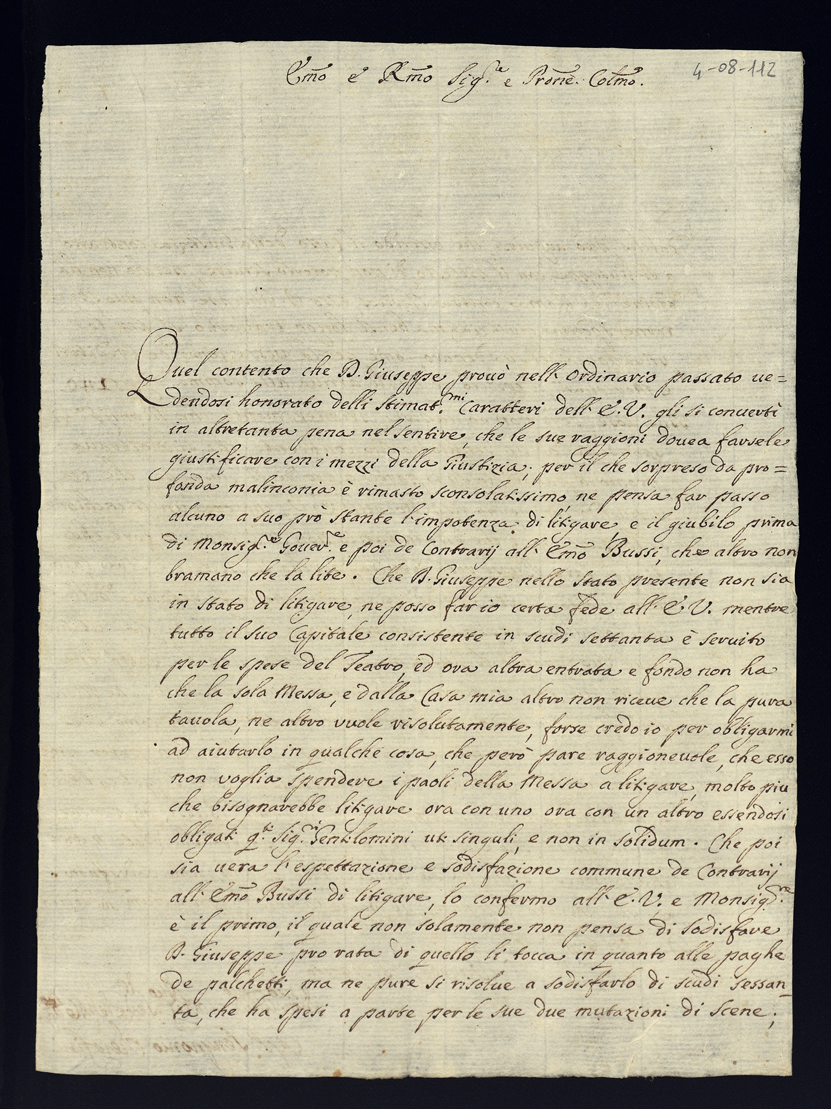 Emo e Rmo Sig.re e Prone Colmo.
4-08-112
Quel contento che D. Giuseppe provò nell' Ordinario passato ve=
dendosi honorato delli stimat.mi Caratteri dell' E.V. gli si convertì
in altretanta pena nel sentire, che le sue raggioni dovea farsele
giustificare con i mezzi della Giustizia; per il che sorpreso da pro=
fonda malinconia è rimasto sconsolatissimo, ne pensa far passo
alcuno a suo prò stante l'impotenza di litigare, e il giubilo prima
di Monsig.re Gover.re e poi de Contrarij all' Emo Bussi, che altro non
bramano che la lite. Che D. Giuseppe nello stato presente non sia
in stato di litigare, ne posso far io certa fede all' E.V. mentre
tutto il suo Capitale consistente in scudi settanta è servito
per le spese del Teatro, ed ora altra entrata e fondo non ha
che la sola Messa, e dalla Casa mia altro non riceve che la pura
tavola, ne altro vuole risolutamente, forse credo io per obligarmi
ad aiutarlo in qualche cosa, che però pare raggionevole, che esso
non voglia spendere i paoli della Messa a litigare, molto più
che bisognarebbe litigare ora con uno ora con un altro essendosi
obligati q.ti Sig.ri Gentilomini uti singuli, e non in solidum. Che poi
sia vera l'espettazione e sodisfazione commune de Contrarij
all' Emo Bussi di litigare, lo confermo all' E.V. e Monsig.re
è il primo, il quale non solamente non pensa di sodisfare
D. Giuseppe pro rata di quello li tocca in quanto alle paghe
de palchetti, ma ne pure si risolve a sodisfarlo di scudi sessan=
ta, che ha spesi a parte per le sue due mutazioni di scene;